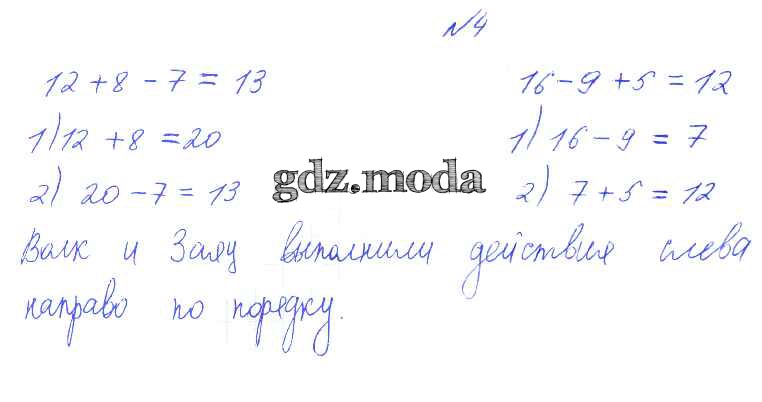 №4
12 + 8 - 7 = 13
1) 12 + 8 = 20
2) 20 - 7 = 13
16 - 9 + 5 = 12
1) 16 - 9 = 7
2) 7 + 5 = 12
gdz.moda
Волк и Заяц выполнили действия слева
направо по порядку.